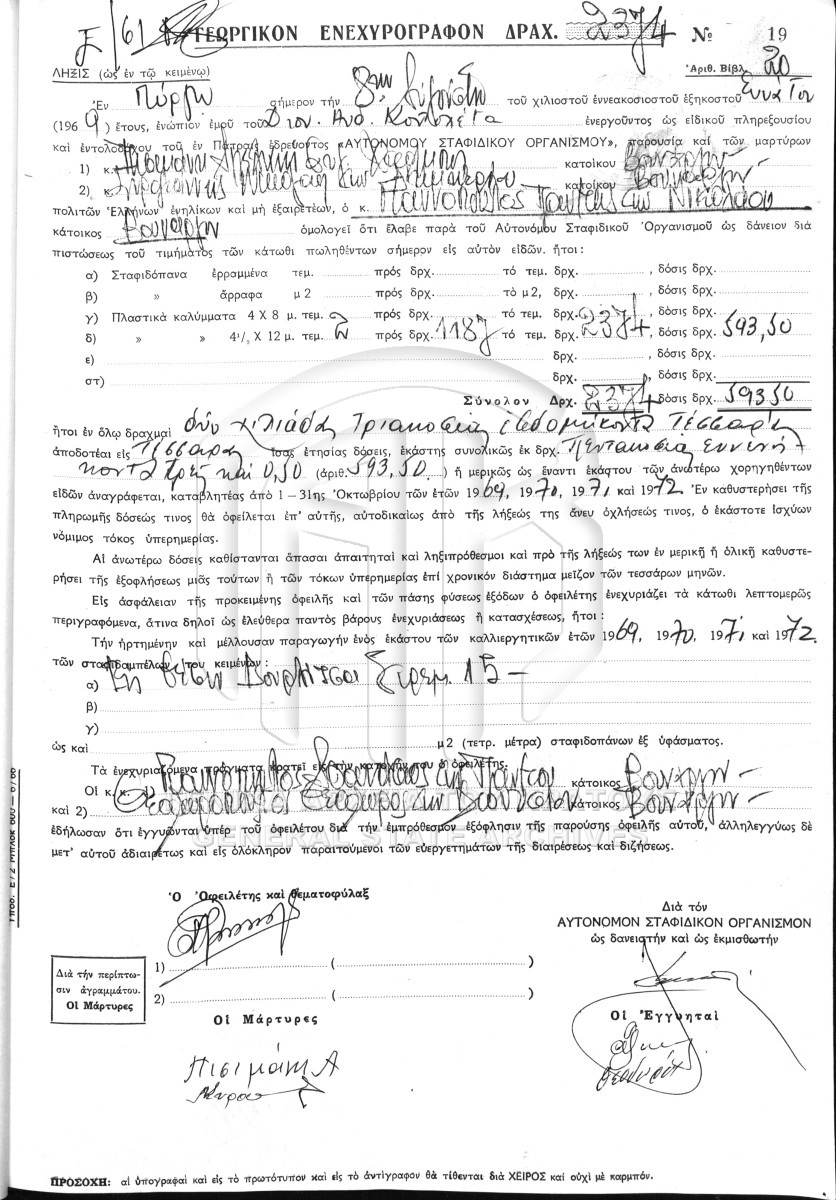 61 ΓΕΩΡΓΙΚΟΝ ΕΝΕΧΥΡΟΓΡΑΦΟΝ ΔΡΑΧ. 2374 Νο 19
ΛΗΞΙΣ (ὡς ἐν τῷ κειμένῳ) Ἀριθ. Βιβλ. 20
Ἐν Πύργῳ σήμερον τὴν 8ην τοῦ χιλιοστοῦ ἐννεακοσιοστοῦ ἑξηκοστοῦ ἐννάτου
(1969) ἔτους, ἐνώπιον ἐμοῦ τοῦ Διον. ἐνεργοῦντος ὡς εἰδικοῦ πληρεξουσίου
καὶ ἐντολοδόχου τοῦ ἐν Πάτραις ἑδρεύοντος «ΑΥΤΟΝΟΜΟΥ ΣΤΑΦΙΔΙΚΟΥ ΟΡΓΑΝΙΣΜΟΥ», παρουσίᾳ καὶ τῶν μαρτύρων
1) κ. κατοίκου
2) κ. κατοίκου
πολιτῶν Ἑλλήνων ἐνηλίκων καὶ μὴ ἐξαιρετέων, ὁ κ. Νικολάου
κάτοικος ὁμολογεῖ ὅτι ἔλαβε παρὰ τοῦ Αὐτονόμου Σταφιδικοῦ Ὀργανισμοῦ ὡς δάνειον διὰ
πιστώσεως τοῦ τιμήματος τῶν κάτωθι πωληθέντων σήμερον εἰς αὐτὸν εἰδῶν. ἤτοι:
α) Σταφιδόπανα ἐρραμμένα τεμ. πρός δρχ. τό τεμ. δρχ. , δόσις δρχ.
β) » ἄρραφα μ2 πρός δρχ. τὸ μ2, δρχ. , δόσις δρχ.
γ) Πλαστικὰ καλύμματα 4 Χ 8 μ. τεμ. πρός δρχ. τό τεμ. δρχ. , δόσις δρχ.
δ) » » 4½ Χ 12 μ. τεμ. 2 πρός δρχ. 1187 τό τεμ. δρχ. 2374 , δόσις δρχ. 593,50
ε) δρχ. , δόσις δρχ.
στ) δρχ. , δόσις δρχ.
Σύνολον Δρχ. 2374 δόσις δρχ. 59350
ἤτοι ἐν ὅλῳ δραχμαὶ δύο χιλιάδες Τριακόσιαι ἑβδομήκοντα Τέσσαρες
ἀποδοτέαι εἰς Τέσσαρας ἴσας ἐτησίας δόσεις, ἑκάστης συνολικῶς ἐκ δρχ. Πεντακοσίων ἐννενή-
κοντα τριῶν καὶ 0,50 (ἀριθ. 593,50) ἢ μερικῶς ὡς ἔναντι ἑκάστου τῶν ἀνωτέρω χορηγηθέντων
εἰδῶν ἀναγράφεται, καταβλητέας ἀπὸ 1 – 31ης Ὀκτωβρίου τῶν ἐτῶν 1969, 1970, 1971 καὶ 1972 Ἐν καθυστερήσει τῆς
πληρωμῆς δόσεώς τινος θὰ ὀφείλεται ἐπ' αὐτῆς, αὐτοδικαίως ἀπὸ τῆς λήξεώς της ἄνευ ὀχλήσεώς τινος, ὁ ἑκάστοτε ἰσχύων
νόμιμος τόκος ὑπερημερίας.
Αἱ ἀνωτέρω δόσεις καθίστανται ἅπασαι ἀπαιτηταὶ καὶ ληξιπρόθεσμοι καὶ πρὸ τῆς λήξεώς των ἐν μερικῇ ἢ ὁλικῇ καθυστε-
ρήσει τῆς ἐξοφλήσεως μιᾶς τούτων ἢ τῶν τόκων ὑπερημερίας ἐπὶ χρονικὸν διάστημα μεῖζον τῶν τεσσάρων μηνῶν.
Εἰς ἀσφάλειαν τῆς προκειμένης ὀφειλῆς καὶ τῶν πάσης φύσεως ἐξόδων ὁ ὀφειλέτης ἐνεχυριάζει τὰ κάτωθι λεπτομερῶς
περιγραφόμενα, ἅτινα δηλοῖ ὡς ἐλεύθερα παντὸς βάρους ἐνεχυριάσεως ἢ κατασχέσεως, ἤτοι:
Τὴν ἠρτημένην καὶ μέλλουσαν παραγωγὴν ἑνὸς ἑκάστου τῶν καλλιεργητικῶν ἐτῶν 1969, 1970, 1971 καὶ 1972.
τῶν σταφιδαμπέλων του κειμένων:
α) θέσιν Στρεμ. 15 –
β)
γ)
ὡς καὶ μ2 (τετρ. μέτρα) σταφιδοπάνων ἐξ ὑφάσματος.
Τὰ ἐνεχυριαζόμενα πράγματα κρατεῖ εἰς τὴν κατοχήν του ὁ ὀφειλέτης.
Οἱ κ. κ. κάτοικος
καὶ 2) κάτοικος
ἐδήλωσαν ὅτι ἐγγυῶνται ὑπὲρ τοῦ ὀφειλέτου διὰ τὴν ἐμπρόθεσμον ἐξόφλησιν τῆς παρούσης ὀφειλῆς αὐτοῦ, ἀλληλεγγύως δὲ
μετ' αὐτοῦ ἀδιαιρέτως καὶ εἰς ὁλόκληρον παραιτούμενοι τῶν εὐεργετημάτων τῆς διαιρέσεως καὶ διζήσεως.
GENERAL STATE ARCHIVES
Ὁ Ὀφειλέτης καὶ θεματοφύλαξ
Διὰ τόν
ΑΥΤΟΝΟΜΟΝ ΣΤΑΦΙΔΙΚΟΝ ΟΡΓΑΝΙΣΜΟΝ
ὡς δανειστὴν καὶ ὡς ἐκμισθωτήν
Διὰ τὴν περίπτω-
σιν ἀγραμμάτου.
Οἱ Μάρτυρες
1) ( )
2) ( )
Οἱ Μάρτυρες
Οἱ Ἐγγυηταὶ
ΠΡΟΣΟΧΗ: αἱ ὑπογραφαὶ καὶ εἰς τὸ πρωτότυπον καὶ εἰς τὸ ἀντίγραφον θὰ τίθενται διὰ ΧΕΙΡΟΣ καὶ οὐχὶ μὲ καρμπόν.